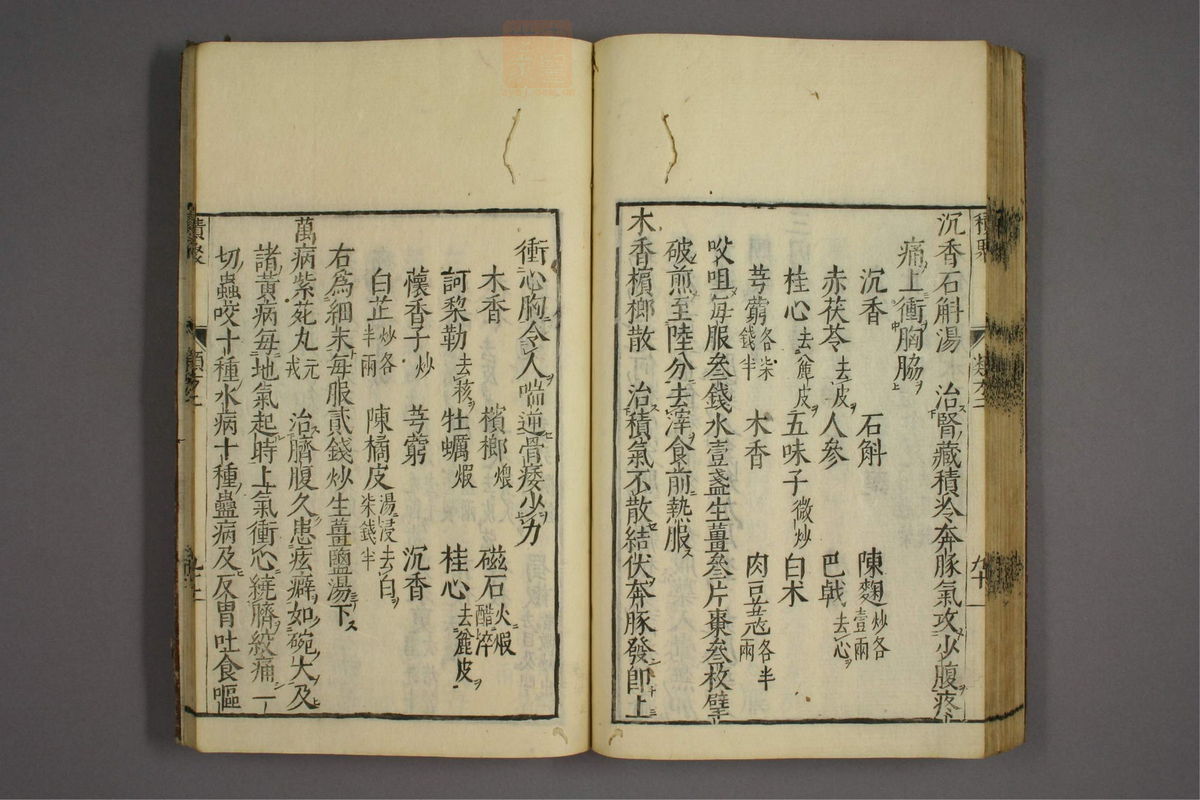 沉香石斛湯 治腎藏積冷奔豚氣攻少腹疼
痛上衝胸脇
沉香 石斛 陳麯炒各壹兩
赤茯苓去皮 人參 巴戟去心
桂心去麄皮 五味子微炒 白朮
芎藭各柒錢半 木香 肉豆蔻各半兩
㕮咀每服叄錢水壹盞生薑叄片棗叄枚擘
破煎至陸分去滓食前熱服
木香檳榔散 治積氣不散結伏奔豚發即上
衝心胸令人喘逆骨痿少力
木香 檳榔煨 磁石火煆醋淬
訶黎勒去核 牡蠣煆 桂心去麄皮
蘹香子炒 芎藭 沉香
白芷炒各半兩 陳橘皮湯浸去白柒錢半
右爲細末每服貳錢炒生薑鹽湯下
萬病紫菀丸元戎 治臍腹久患痃癖如碗大及
諸黃病每地氣起時上氣衝心繞臍絞痛一
切蟲咬十種水病十種蠱病及反胃吐食嘔
積聚